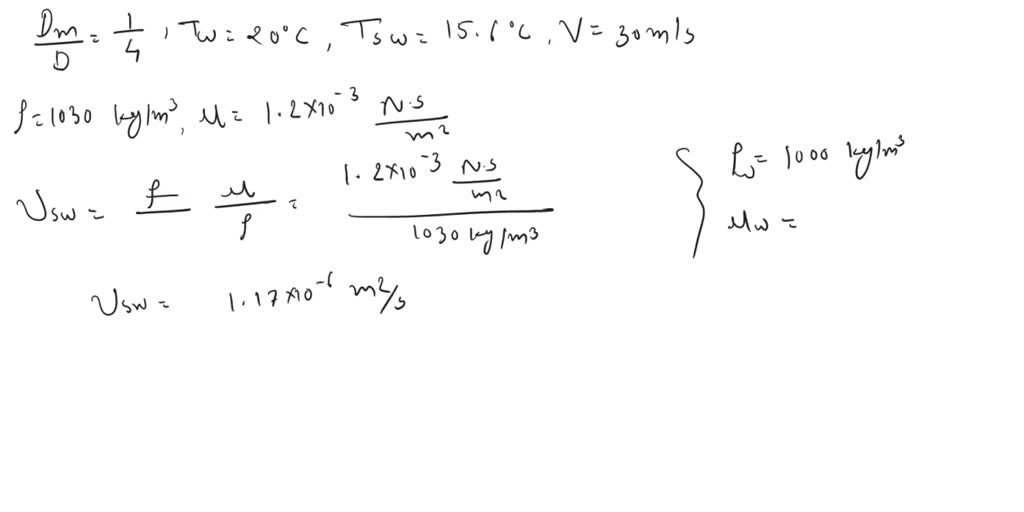 Dm/D = 1/4, Tw = 20°C, Tsw = 15.6°C, V = 30 m/s
ρ = 1030 kg/m³, μ = 1.2×10⁻³ N·s/m²
νsw = μ/ρ = 1.2×10⁻³ N·s/m² / 1030 kg/m³
νsw = 1.17×10⁻⁶ m²/s
ρw = 1000 kg/m³
μw =